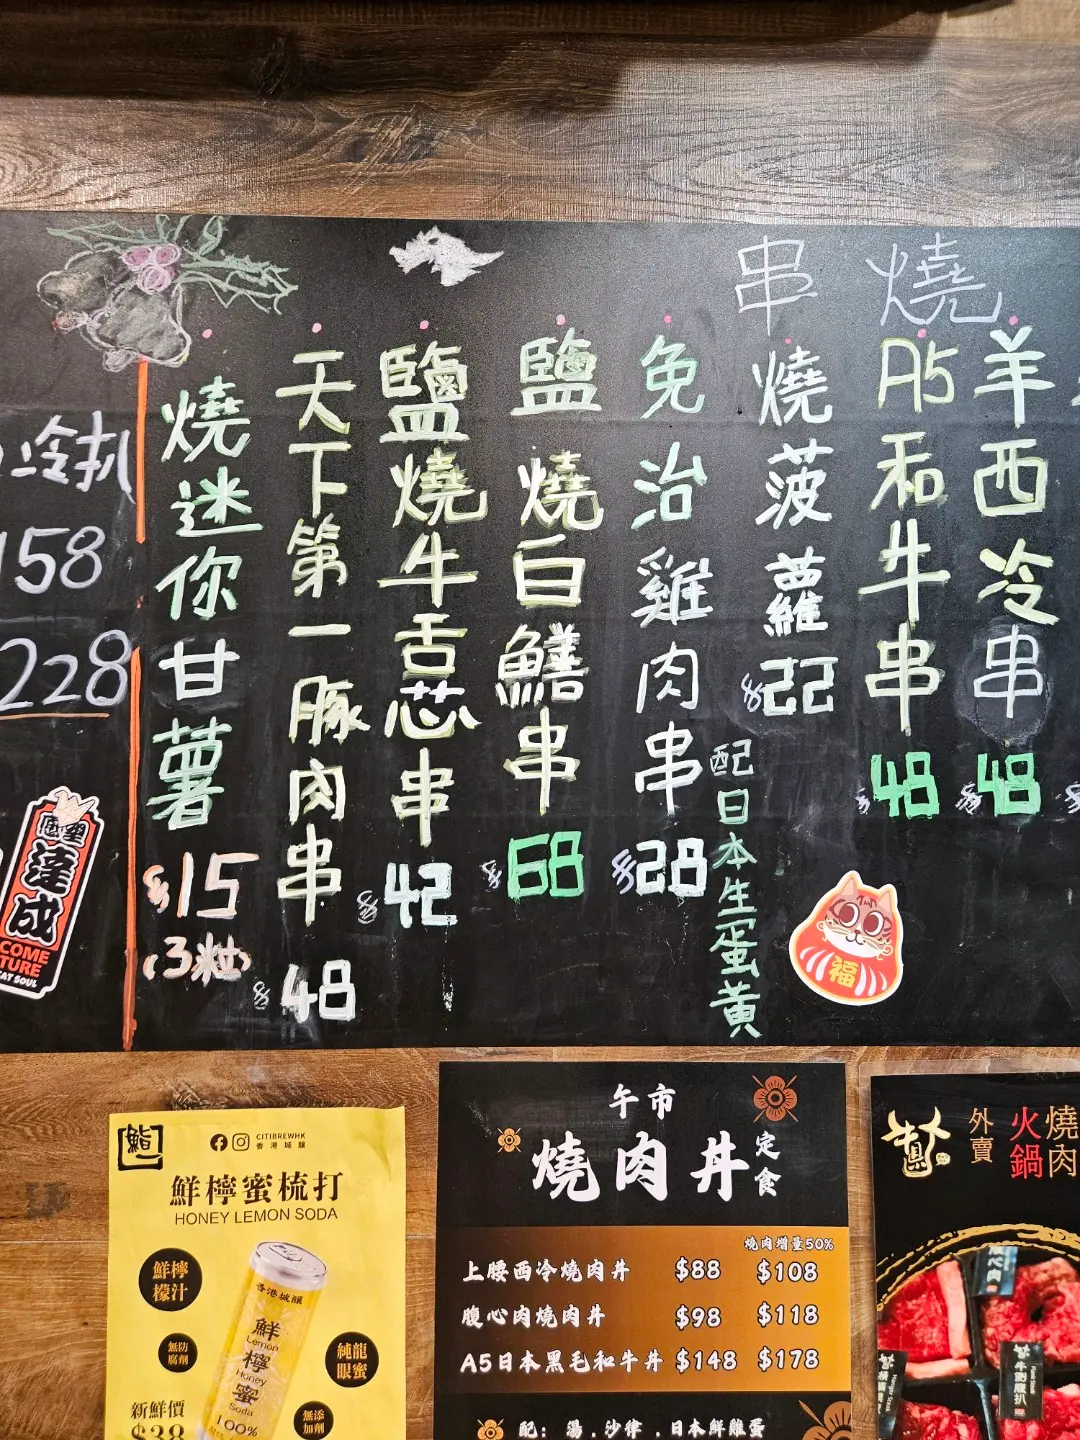 串燒
羊西冷串 $48
A5和牛串 $48
燒菠蘿 $22
免治雞肉串 $28
配日本生蛋黃
鹽燒白鱔串 $68
鹽燒牛舌芯串 $42
天下第一豚肉串 $48
燒迷你甘薯 $15
(3粒)
冷扒
158
228
達成
COME
TURE
EAT SOUL
福
CITIBREWHK
香港城釀
鮮檸蜜梳打
HONEY LEMON SODA
鮮檸檬汁
無防腐劑
純龍眼蜜
無添加劑
香港城釀
鮮
Lemon
檸
Honey
蜜
Soda
100%
新鮮價
$38
午市
燒肉丼
定食
燒肉增量50%
上腰西冷燒肉丼 $88 $108
腹心肉燒肉丼 $98 $118
A5日本黑毛和牛丼 $148 $178
配：湯．沙律．日本鮮雞蛋
外賣
火鍋
燒肉
心肉